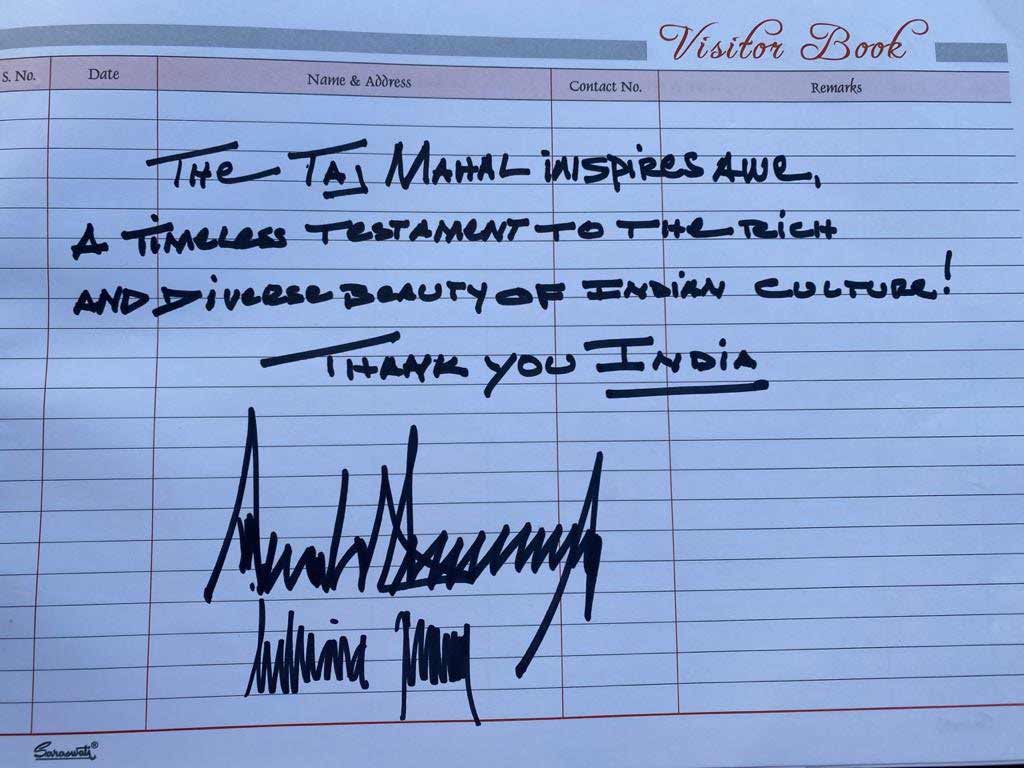 Visitor Book
S. No. Date Name & Address Contact No. Remarks
THe TAJ MAHAL iNSpiRes AWe,
A TiMeLess TesTAMENT TO THe RicH
AND DiveRse BeAUTY OF INDiAN CULTURe!
THANK YOU INDiA
Saraswati®